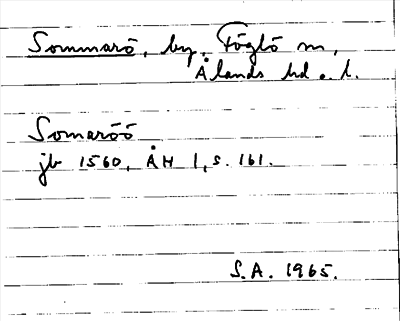 Sommarö, by. Föglö sn,
Ålands hd o. l.
Somaröö
jb 1560, ÅH 1, s. 161.
S.A. 1965.